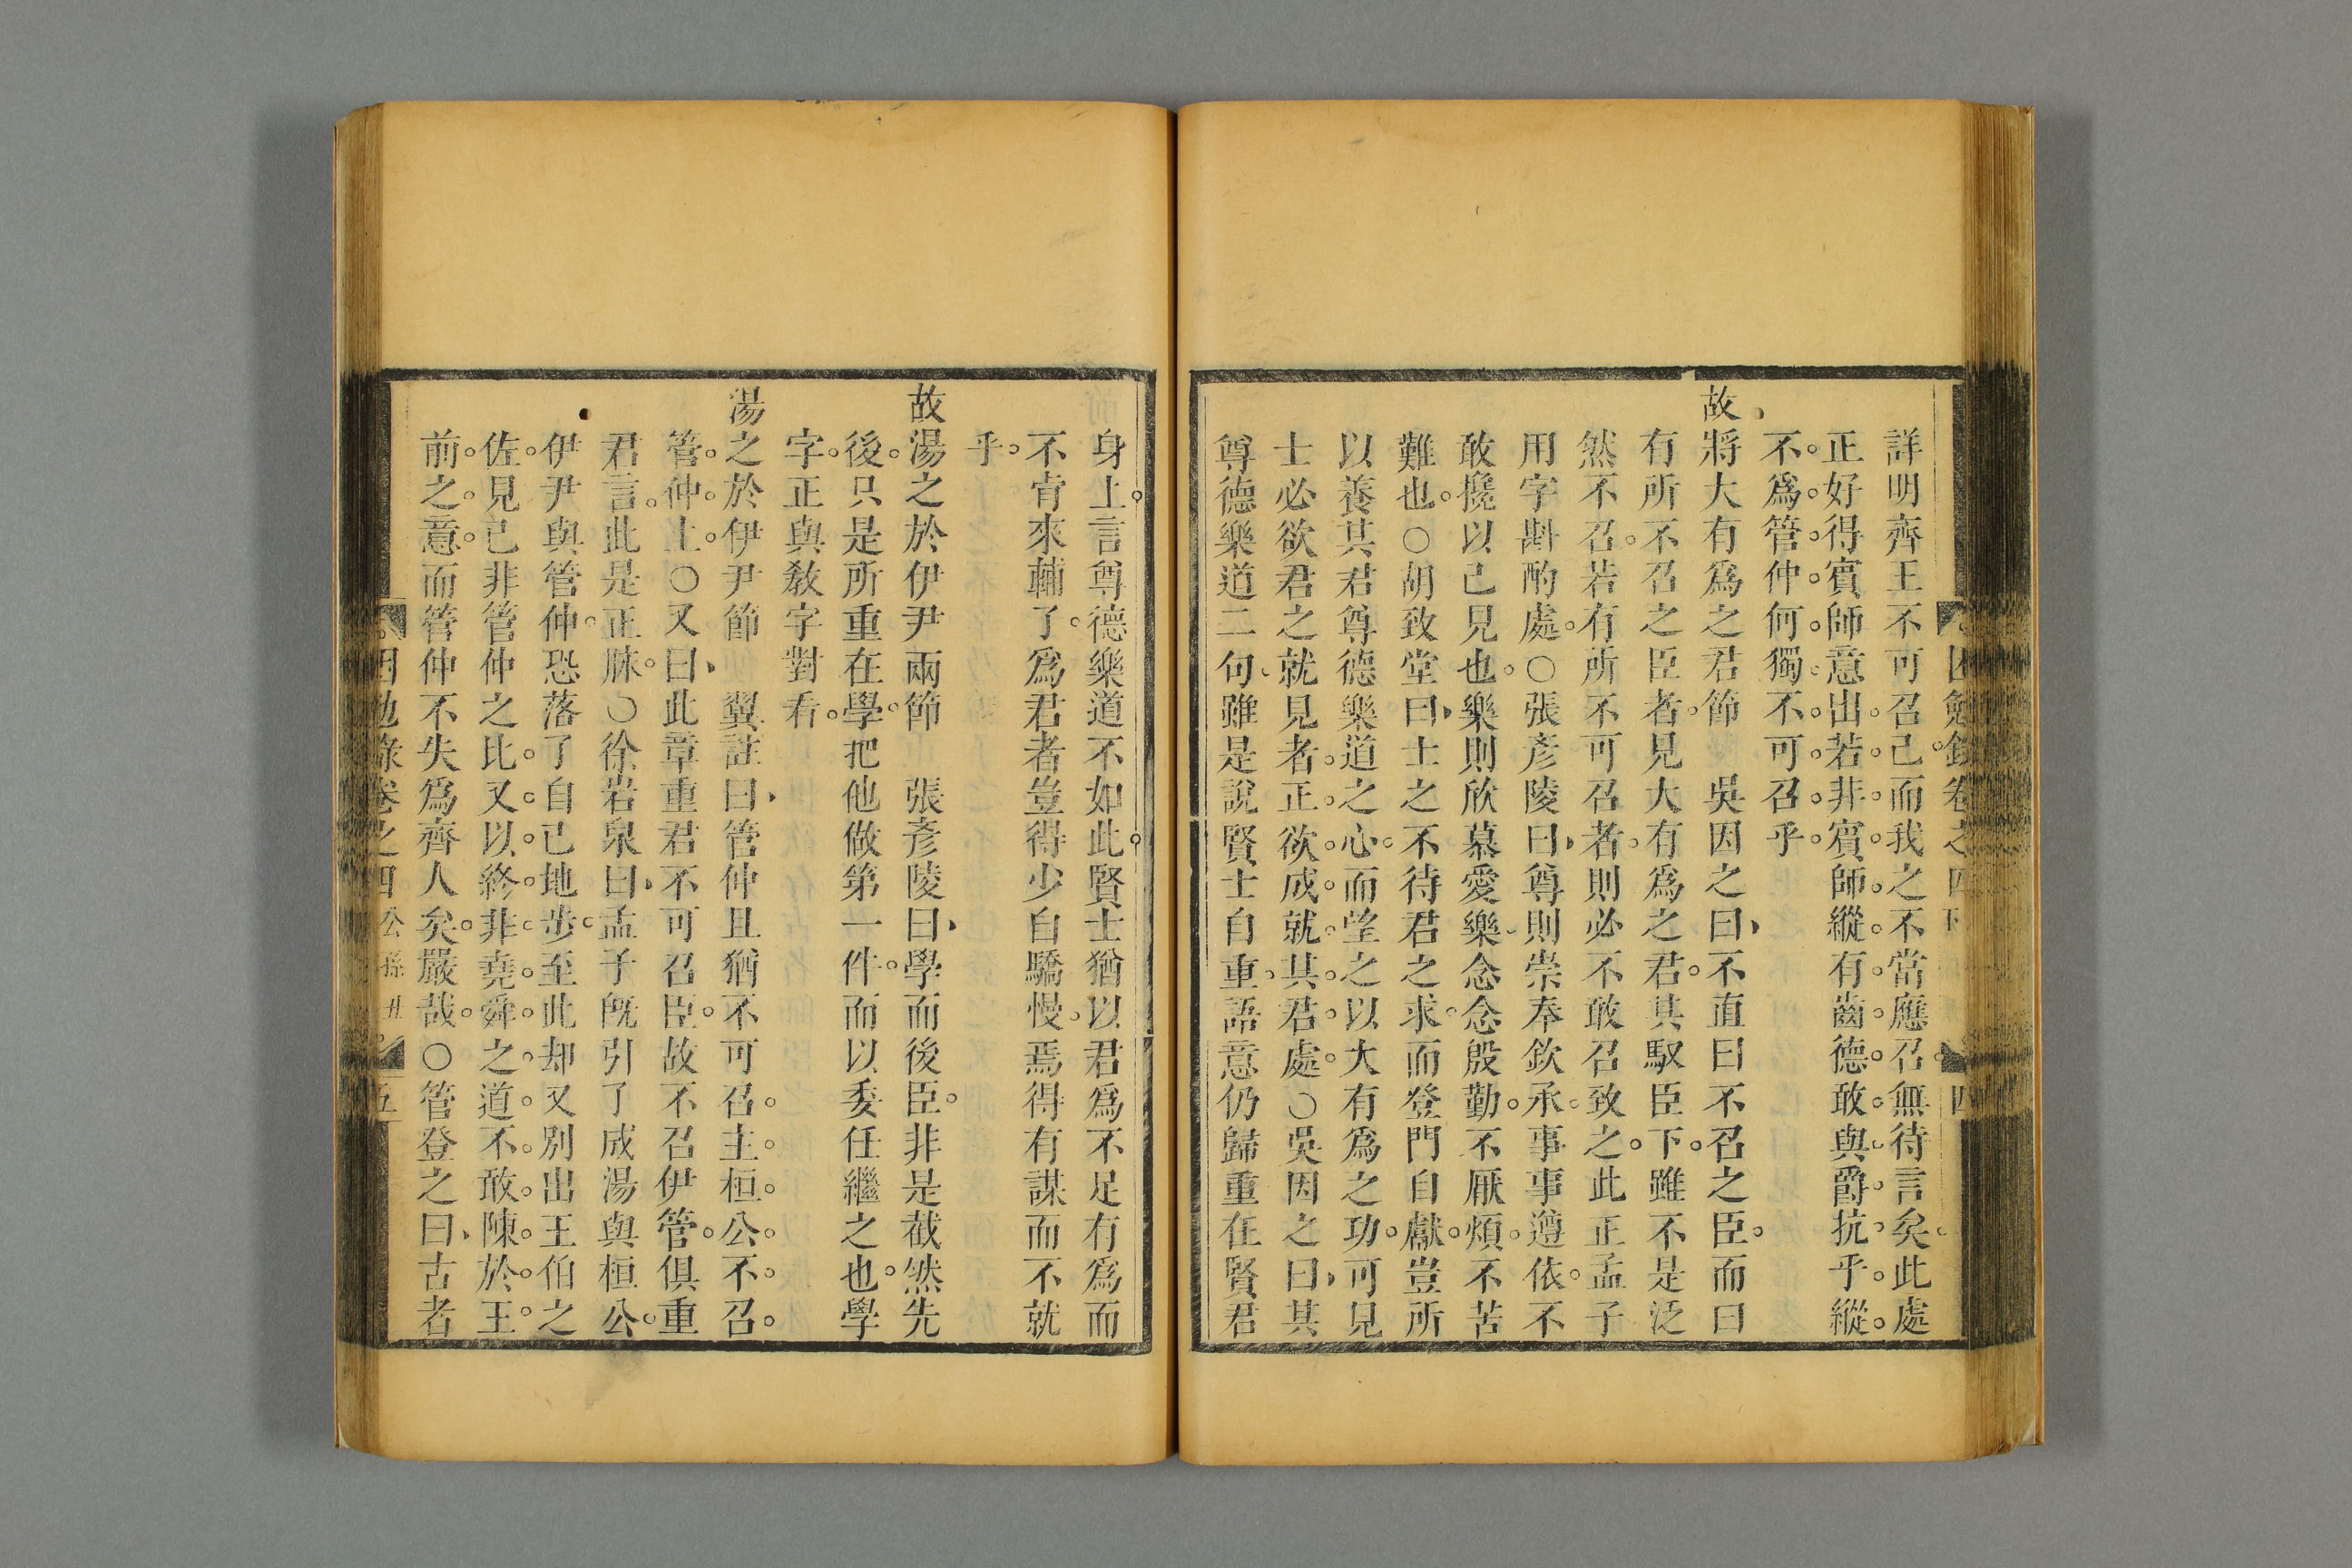 詳明齊王不可召己。而我之不當應召。無待言矣。此處
正好得賓師意出。若。非。賓。師。縱。有。齒。德。敢。與。爵。抗。乎。縱。
不。爲。管。仲。何。獨。不。可。召。乎。
故將大有爲之君節 吳因之曰、不直曰不召之臣。而曰
有所不召之臣者。見大有爲之君。其馭臣下。雖不是泛
然不召。若有所不可召者。則必不敢召致之。此正孟子
用字斟酌處。○張彥陵曰、尊則崇奉欽承。事事遵依。不
敢攙以己見也。樂則欣慕愛樂。念念殷勤。不厭煩。不苦
難也。○胡致堂曰、士之不待君之求。而登門自獻。豈所
以養其君尊德樂道之心。而望之以大有爲之功。可見
士必欲君之就見者。正。欲。成。就。其。君。處。○吳因之曰、其
尊德樂道二句、雖是說賢士自重。語意仍歸重在賢君
困勉錄卷之四下 四
身上。言尊德樂道不如此。賢士猶以君爲不足有爲而
不肯來輔了。爲君者豈得少自驕慢。焉得有謀而不就
乎。
故湯之於伊尹兩節 張彥陵曰、學而後臣。非是截然先
後。只是所重在學。把他做第一件。而以委任繼之也。學
字。正與敎字對看。
湯之於伊尹節 翼註曰、管仲且猶不可召。主。桓。公。不。召。
管。仲。上。○又曰、此章重君不可召臣。故不召伊管。俱重
君言。此是正脉。○徐岩泉曰、孟子旣引了成湯與桓公。
伊尹與管仲。恐落了自己地步。至此却又別出王伯之
佐。見己非管仲之比。又。以。終。非。堯。舜。之。道。不。敢。陳。於。王。
前。之。意。而管仲不失爲齊人矣。嚴哉。○管登之曰、古者
困勉錄卷之四 公孫丑 五